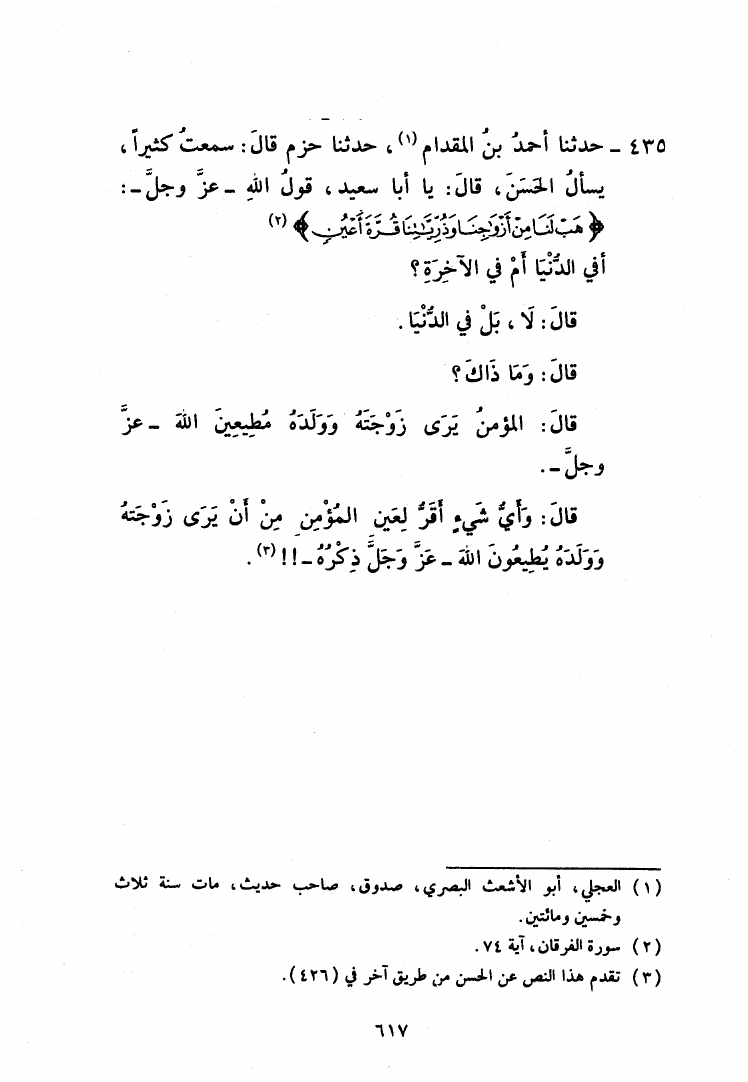 ٤٣٥ ــ حدثنا أحمدُ بنُ المقدام (١) ، حدثنا حزم قالَ: سمعتُ كثيراً ،
يسألُ الحَسَنَ، قالَ: يا أبا سعيد، قولُ اللهِ ــ عزَّ وجلَّ ــ:
﴿ هَبْ لَنَا مِنْ أَزْوَٰجِنَا وَذُرِّيَّـٰتِنَا قُرَّةَ أَعْيُنٍ ﴾ (٢)
أفي الدُّنْيَا أَمْ في الآخِرَةِ؟
قالَ: لَا ، بَلْ في الدُّنْيَا.
قالَ: وَمَا ذَاكَ؟
قالَ: المؤمنُ يَرَى زَوْجَتَهُ وَوَلَدَهُ مُطِيعِينَ اللهَ ــ عزَّ
وجلَّ ــ.
قالَ: وَأَيُّ شَيءٍ أَقَرُّ لِعَينِ المُؤْمِنِ مِنْ أَنْ يَرَى زَوْجَتهُ
وَوَلَدَهُ يُطِيعُونَ اللهَ ــ عَزَّ وَجَلَّ ذِكْرُهُ ــ!! (٣) .
(١) العجلي، أبو الأشعث البصري، صدوق، صاحب حديث، مات سنة ثلاث
وخمسين ومائتين.
(٢) سورة الفرقان، آية ٧٤.
(٣) تقدم هذا النص عن الحسن من طريق آخر في (٤٢٦).
٦١٧